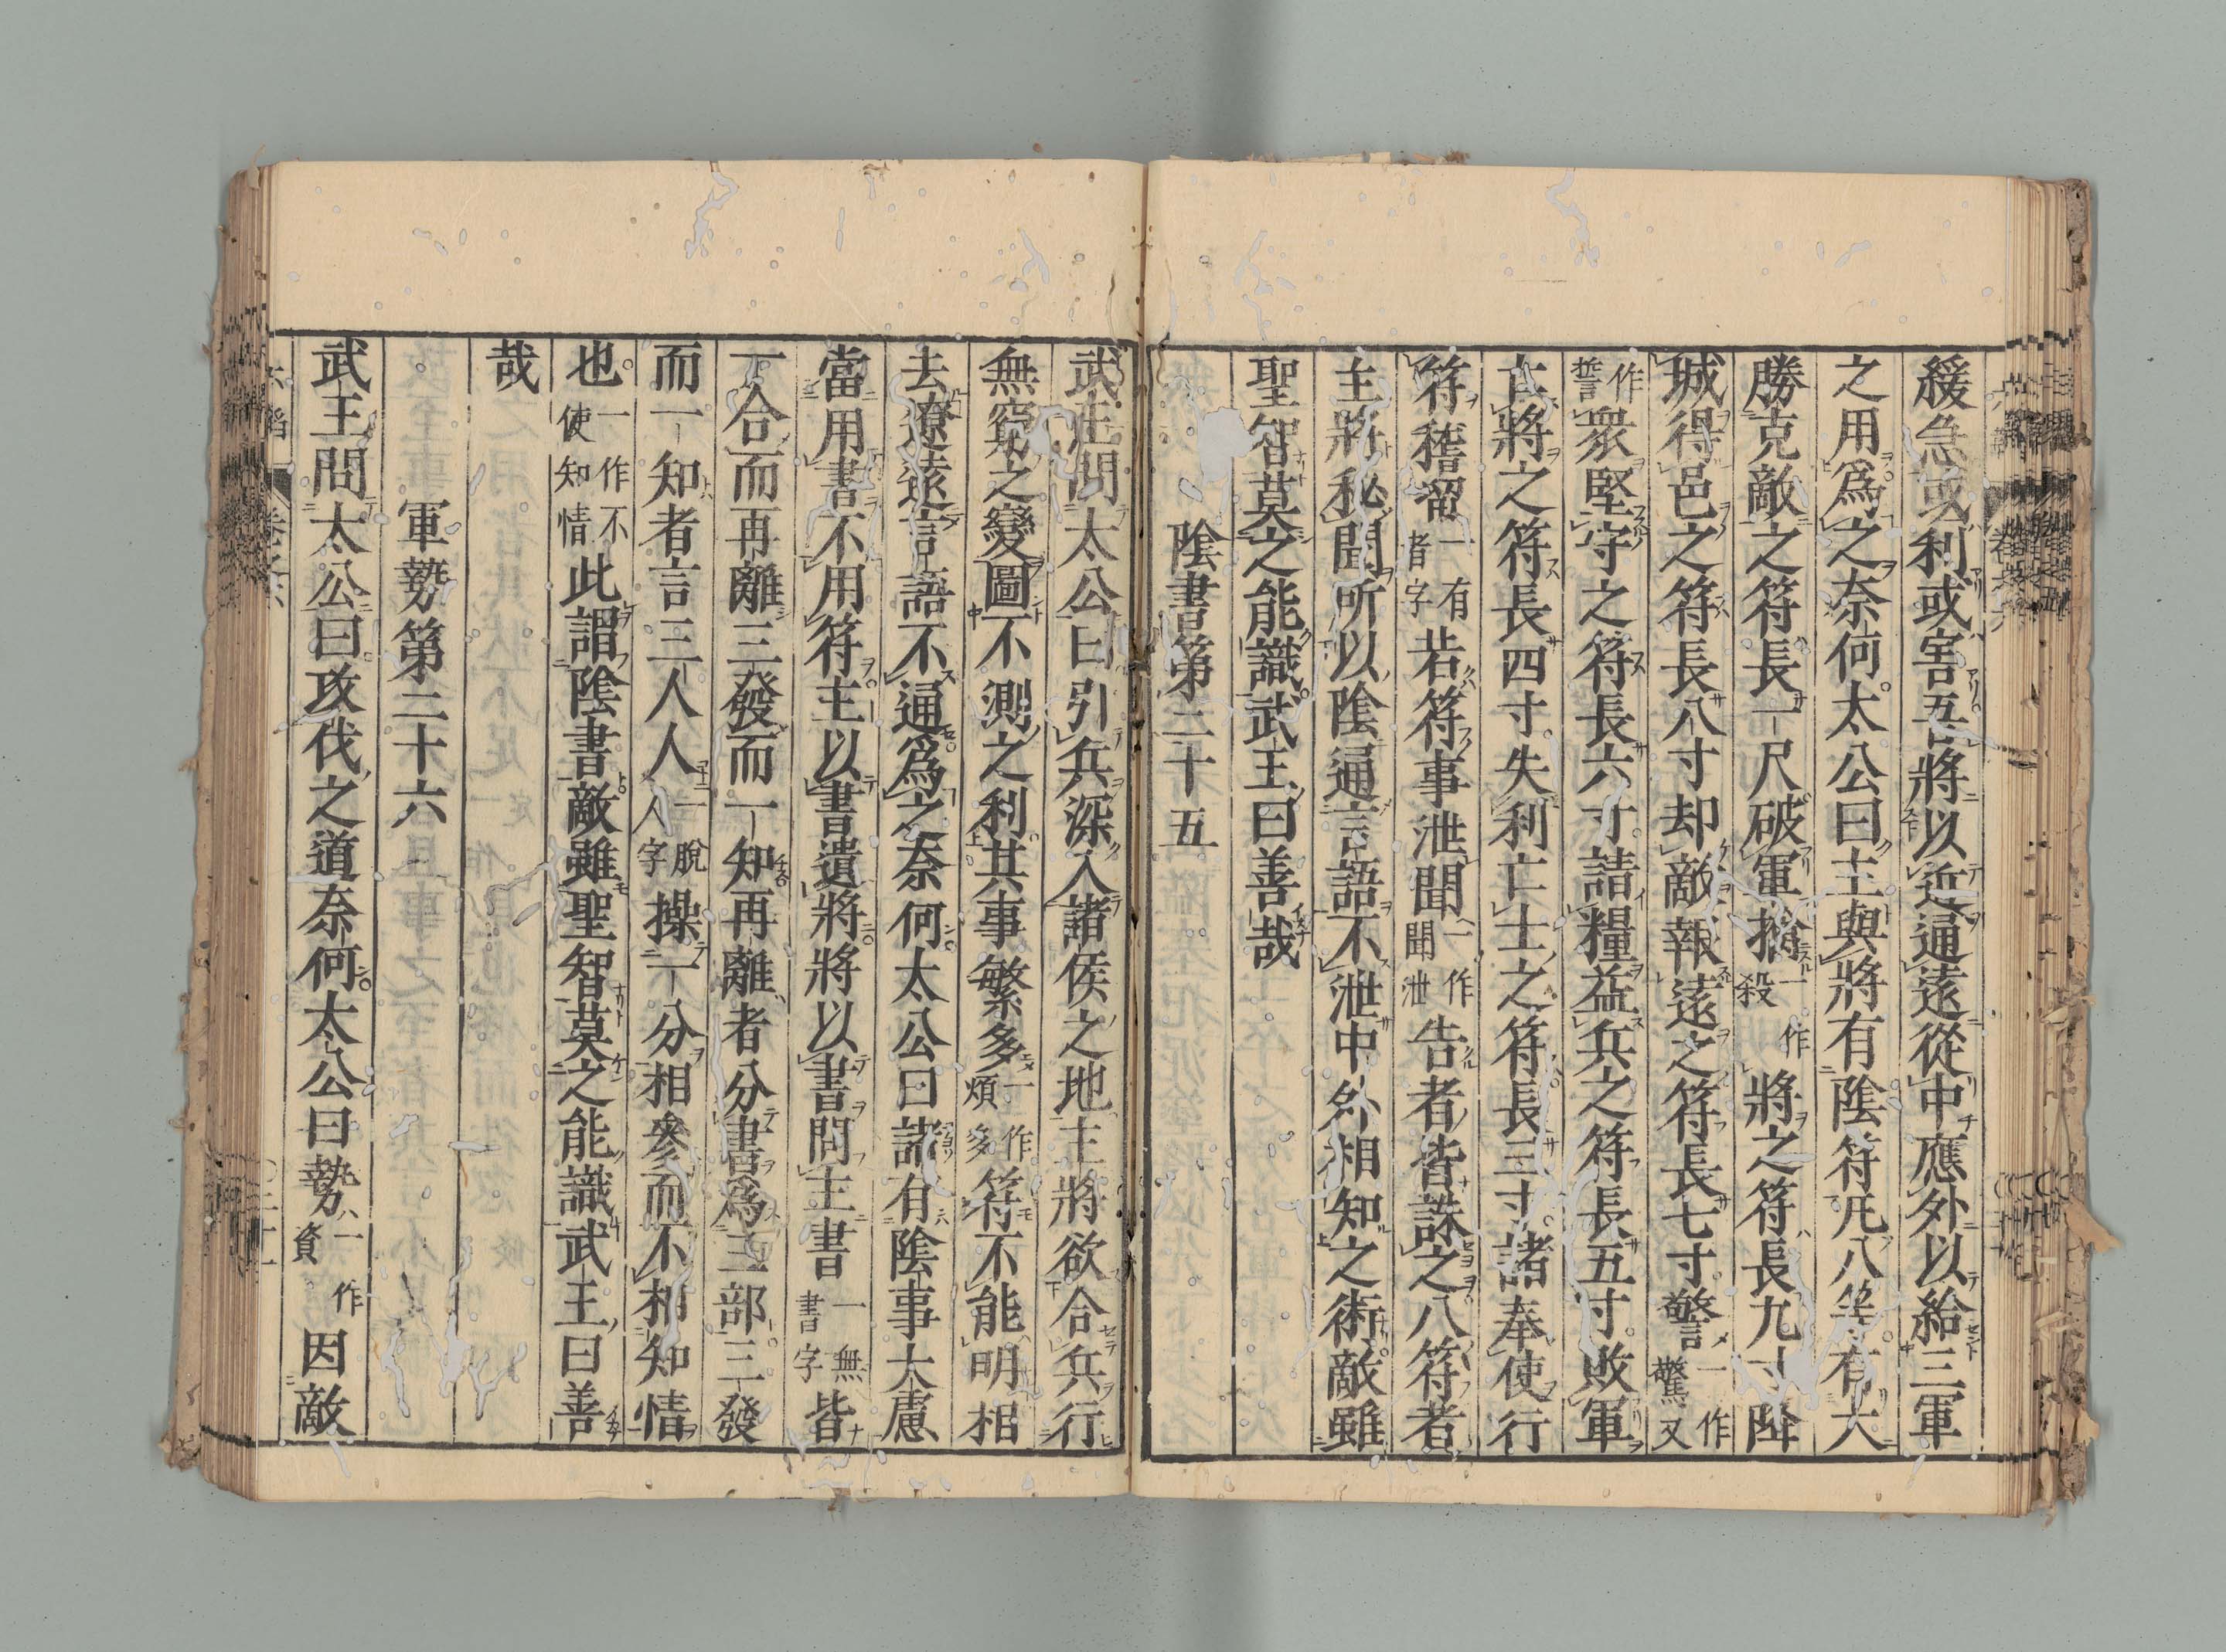 緩急或利或害吾將以近通遠從中應外以給三軍
之用爲之奈何太公曰主與將有陰符凡八等有大
勝克敵之符長一尺破軍擒一作殺將之符長九寸降
城得邑之符長八寸却敵報遠之符長七寸警一作驚又
作誓衆堅守之符長六寸請糧益兵之符長五寸敗軍
亡將之符長四寸失利亡士之符長三寸諸奉使行
符稽留一有者字若符事泄聞一作聞泄告者皆誅之八符者
主將秘聞所以陰通言語不泄中外相知之術敵雖
聖智莫之能識武王曰善哉
陰書第二十五
武王問太公曰引兵深入諸侯之地主將欲合兵行
無窮之變圖不測之利其事繁多一作煩多符不能明相
去遼遠言語不通爲之奈何太公曰諸有陰事大慮
當用書不用符主以書遺將將以書問主書一無書字皆
一合而再離三發而一知再離者分書爲三部三發
而一知者言三人人一脫人字操一分相參而不相知情
也一作使不知情此謂陰書敵雖聖智莫之能識武王曰善
哉
軍勢第二十六
武王問太公曰攻伐之道奈何太公曰勢一作資因敵